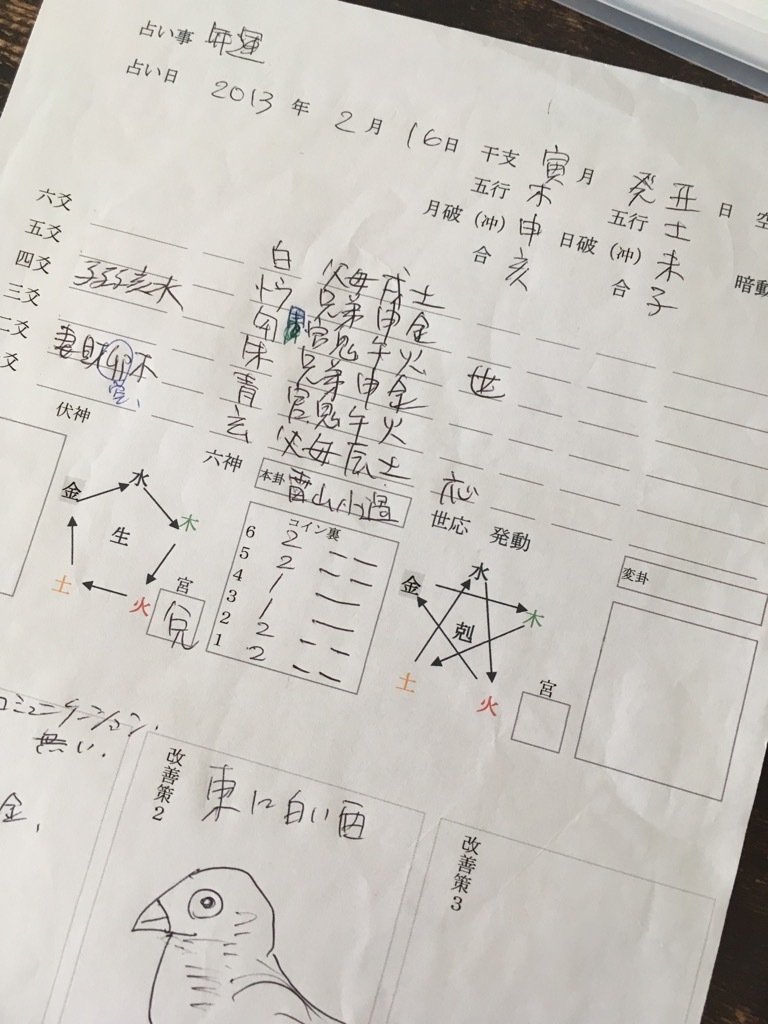 占い事 年運
占い日 2013年 2月 16日 干支 寅月 癸丑日 空
五行 木 五行 土
月破(冲) 申 日破(冲) 未
合 亥 合 子 暗動
六爻 白 父母 戌土
五爻 兄弟 申金
四爻 子孫亥水 勾 官鬼 午火 世
三爻 朱 兄弟 申金
二爻 妻財卯木 青 官鬼 午火
爻 玄 父母 辰土 応
伏神 六神 本卦 雷山小過 世応 発動
コイン裏
6 2
5 2
4 1
3 1
2 2
1 2
水
金 木
生
土 火
宮 兌
水
金 木
剋
土 火
宮
変卦
コミュニケーション.
無い.
金,
改善策2 東に白い酉
改善策3